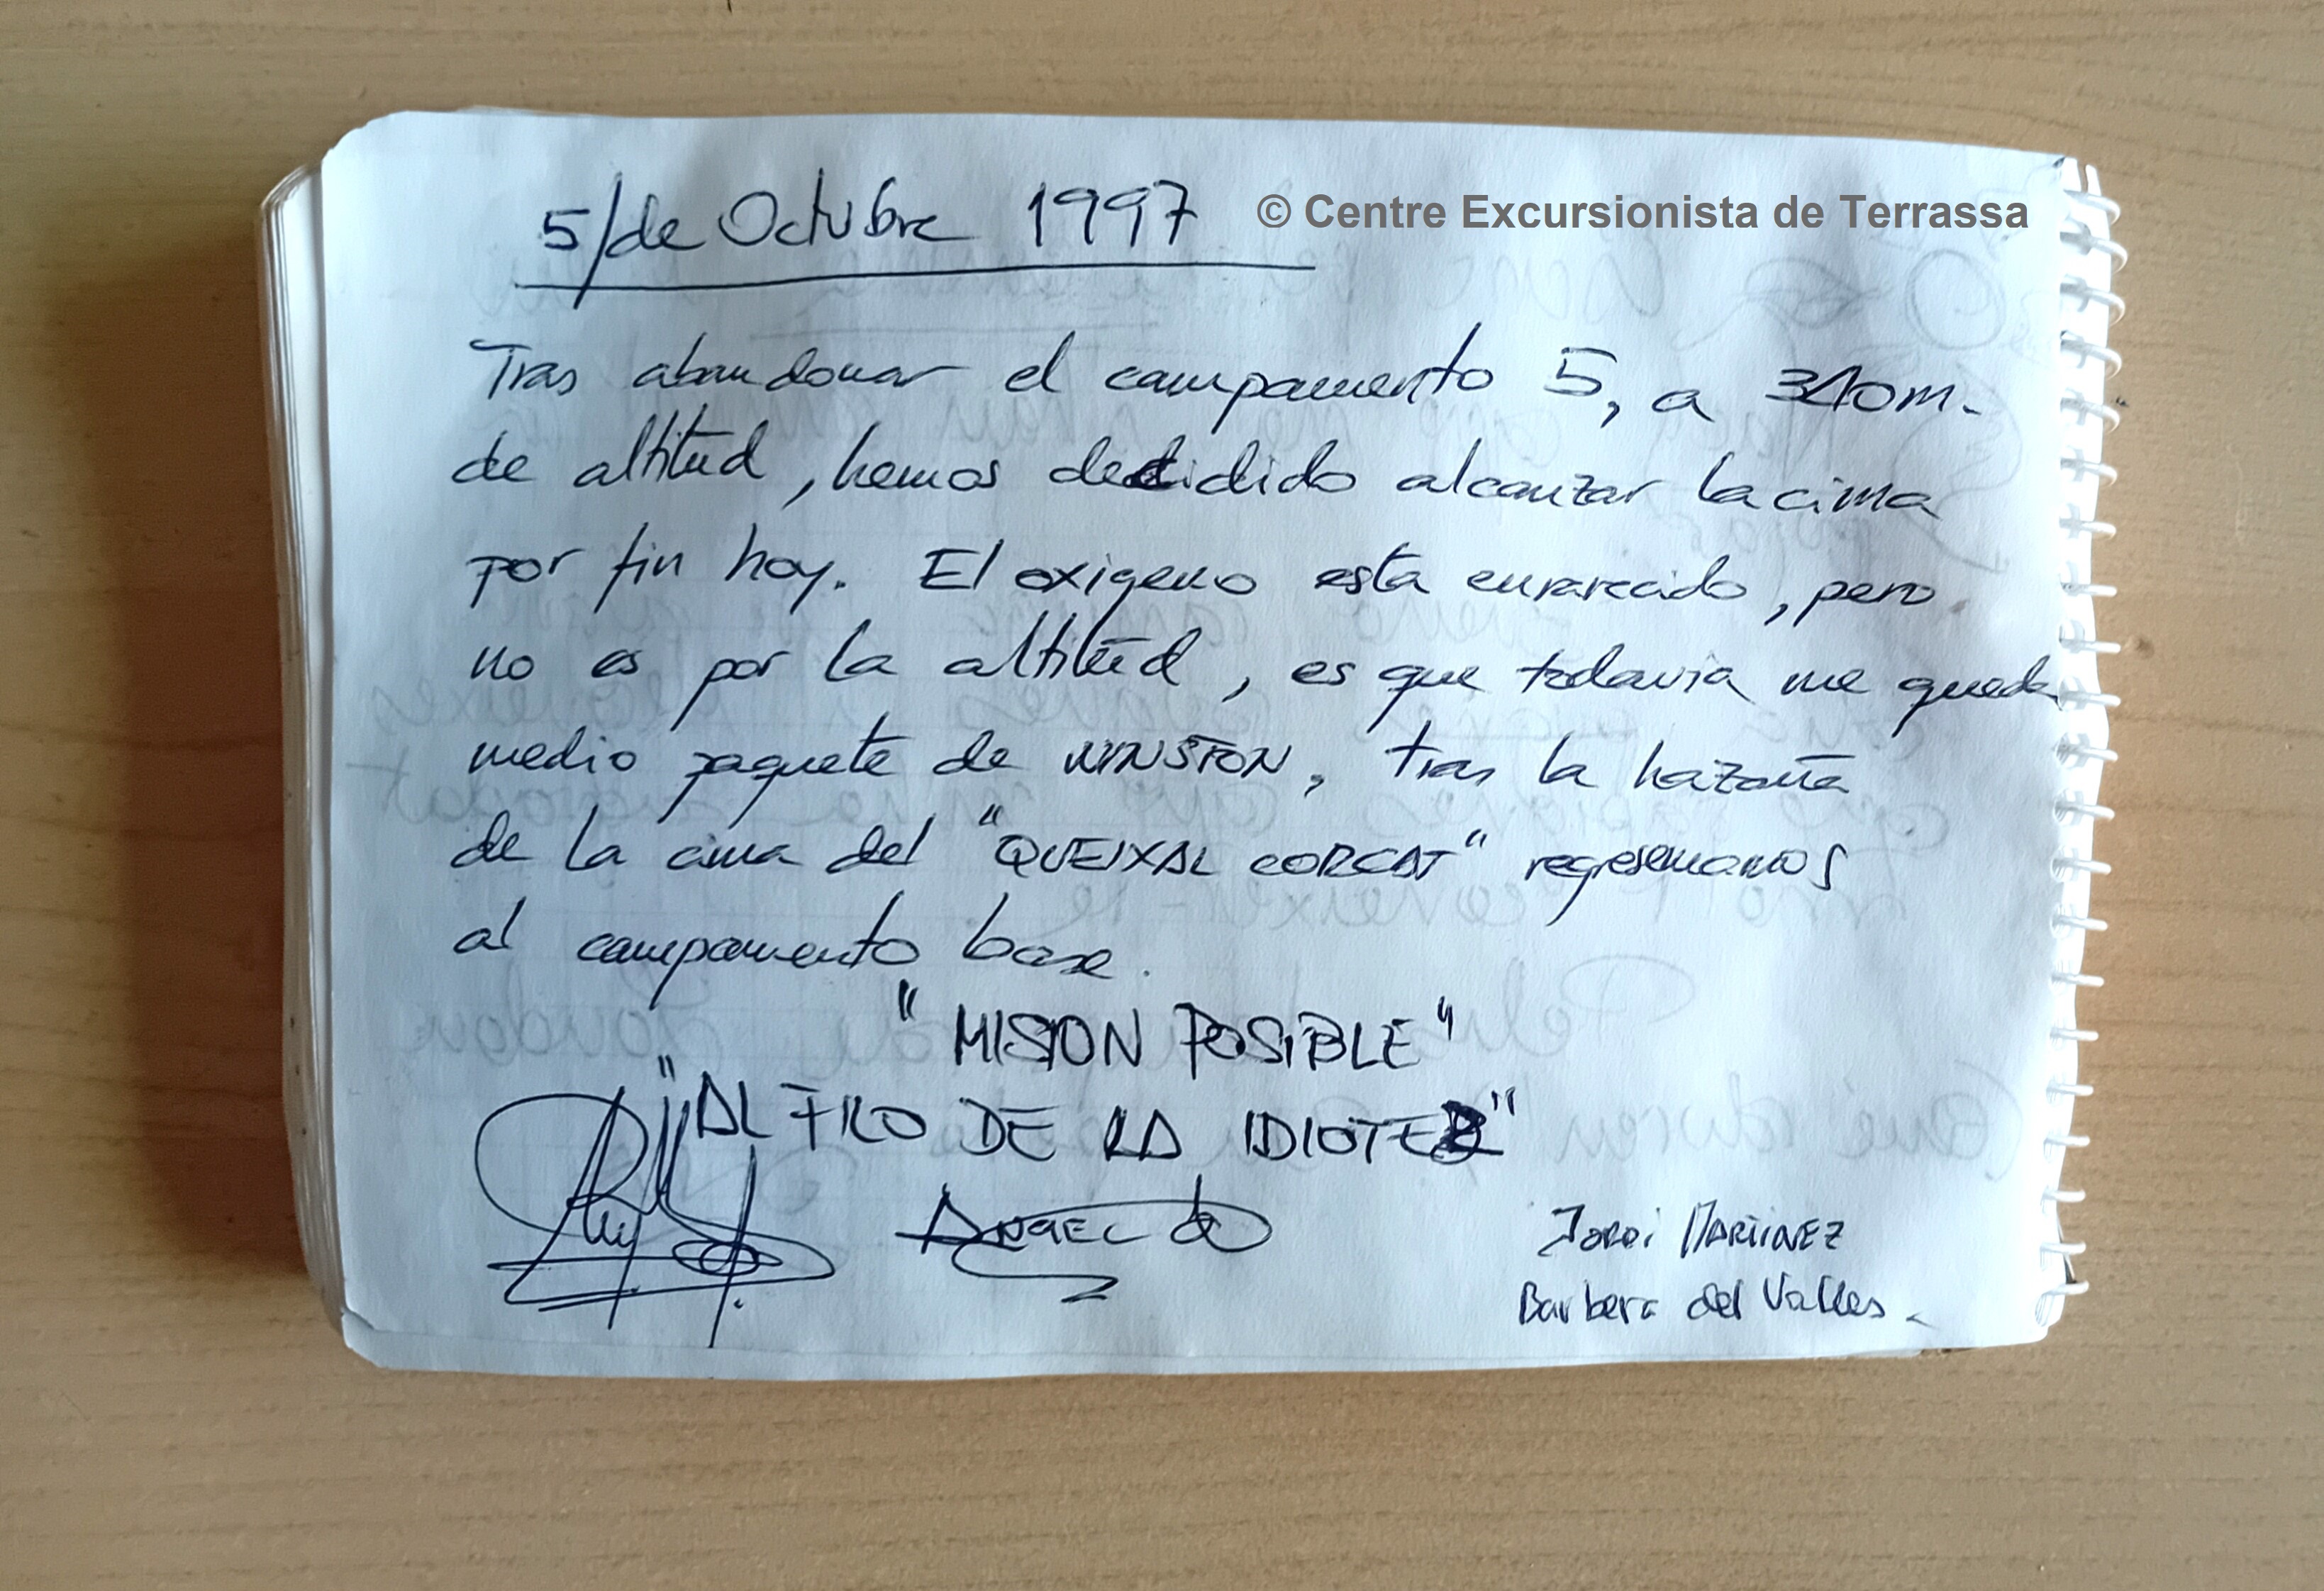 5/de Octubre 1997
© Centre Excursionista de Terrassa
Tras abandonar el campamento 5, a 310m.
de altitud, hemos decidido alcanzar la cima
por fin hoy. El oxigeno esta enrarecido, pero
no es por la altitud, es que todavia me queda
medio paquete de WINSTON, tras la hazaña
de la cima del "QUEIXAL CORCAT" regresamos
al campamento base.
"MISION POSIBLE"
"AL FILO DE LA IDIOTEZ"
ANGEL
Jordi MARTINEZ
Barbera del Valles.